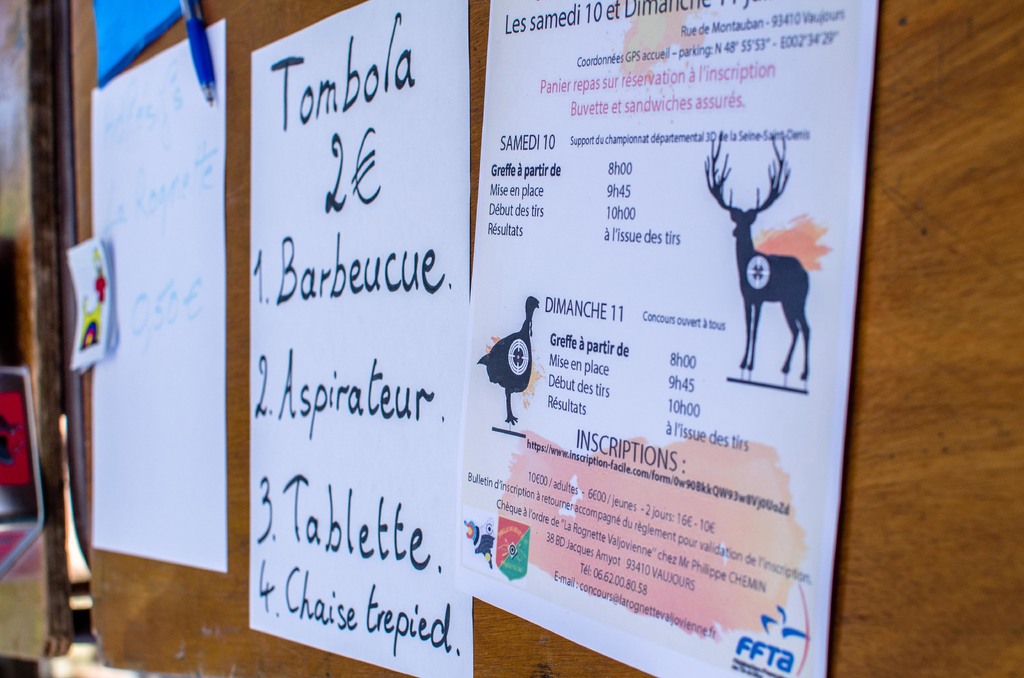 La Rognette
0,50€
Tombola
2€
1. Barbeucue.
2. Aspirateur.
3. Tablette.
4. Chaise trepied.
Les samedi 10 et Dimanche 11
Rue de Montauban - 93410 Vaujours
Coordonnées GPS accueil – parking: N 48° 55'53" - E002°34'29"
Panier repas sur réservation à l'inscription
Buvette et sandwiches assurés.
SAMEDI 10 Support du championnat départemental 3D de la Seine-Saint-Denis
Greffe à partir de 8h00
Mise en place 9h45
Début des tirs 10h00
Résultats à l'issue des tirs
DIMANCHE 11 Concours ouvert à tous
Greffe à partir de 8h00
Mise en place 9h45
Début des tirs 10h00
Résultats à l'issue des tirs
INSCRIPTIONS :
10€00 / adultes - 6€00 / jeunes - 2 jours: 16€ - 10€
Bulletin d'inscription à retourner accompagné du règlement pour validation de l'inscription.
Chèque à l'ordre de "La Rognette Valjovienne" chez Mr Philippe CHEMIN
38 BD Jacques Amyot 93410 VAUJOURS
Tél: 06.62.00.80.58
E-mail : concours@larognettevaljovienne.fr
FFTA